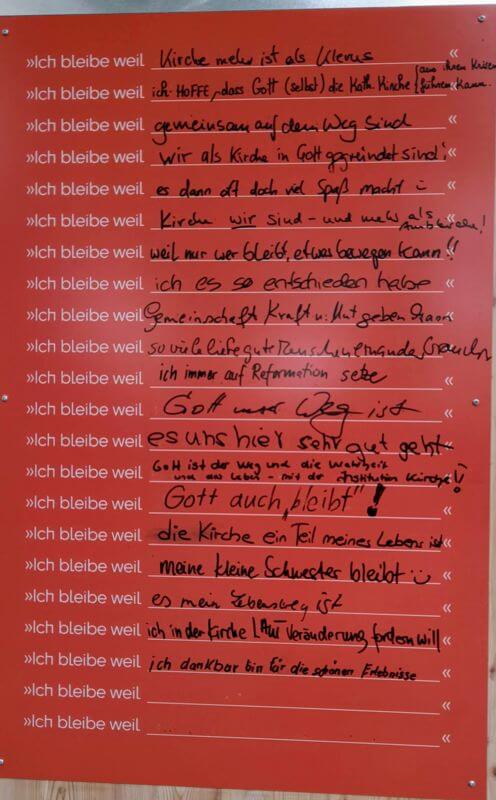 »Ich bleibe weil Kirche mehr ist als Klerus «
»Ich bleibe weil ich HOFFE, dass Gott (selbst) die Kath. Kirche {aus ihren Krisen führen kann. «
»Ich bleibe weil gemeinsam auf dem Weg sind «
»Ich bleibe weil wir als Kirche in Gott gegründet sind! «
»Ich bleibe weil es dann oft doch viel Spaß macht «
»Ich bleibe weil Kirche wir sind - und mehr als Amtskirche! «
»Ich bleibe weil weil nur wer bleibt, etwas bewegen kann!! «
»Ich bleibe weil ich es so entschieden habe «
»Ich bleibe weil Gemeinschaft Kraft u. Mut geben kann «
»Ich bleibe weil so viele liebe gute Menschen einander brauchen «
»Ich bleibe weil ich immer auf Reformation setze «
»Ich bleibe weil Gott unser Weg ist «
»Ich bleibe weil es uns hier sehr gut geht «
»Ich bleibe weil Gott ist der Weg und die Wahrheit und das Leben - mit der Institution Kirche! «
»Ich bleibe weil Gott auch „bleibt"! «
»Ich bleibe weil die Kirche ein Teil meines Lebens ist «
»Ich bleibe weil meine kleine Schwester bleibt «
»Ich bleibe weil es mein Lebensweg ist «
»Ich bleibe weil ich in der Kirche LAUT Veränderung fordern will «
»Ich bleibe weil ich dankbar bin für die schönen Erlebnisse «
»Ich bleibe weil «
»Ich bleibe weil «